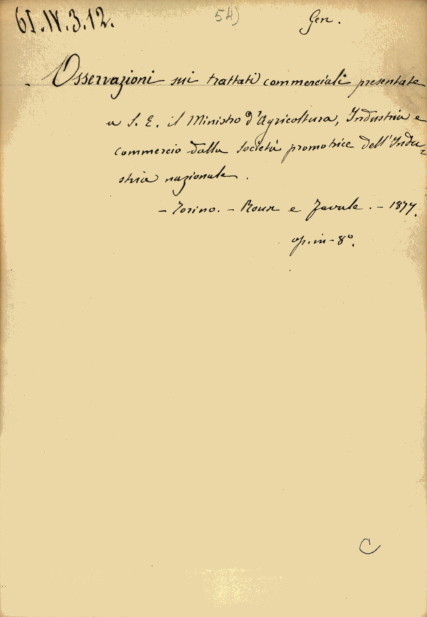 61.IV.3.12. 54) Gen.
Osservazioni sui trattati commerciali presentate
a S. E. il Ministro d'Agricoltura, Industria e
commercio dalla società promotrice dell'Indu-
stria nazionale.
- Torino. - Roux e Favale. - 1877.
op. in-8º.
C